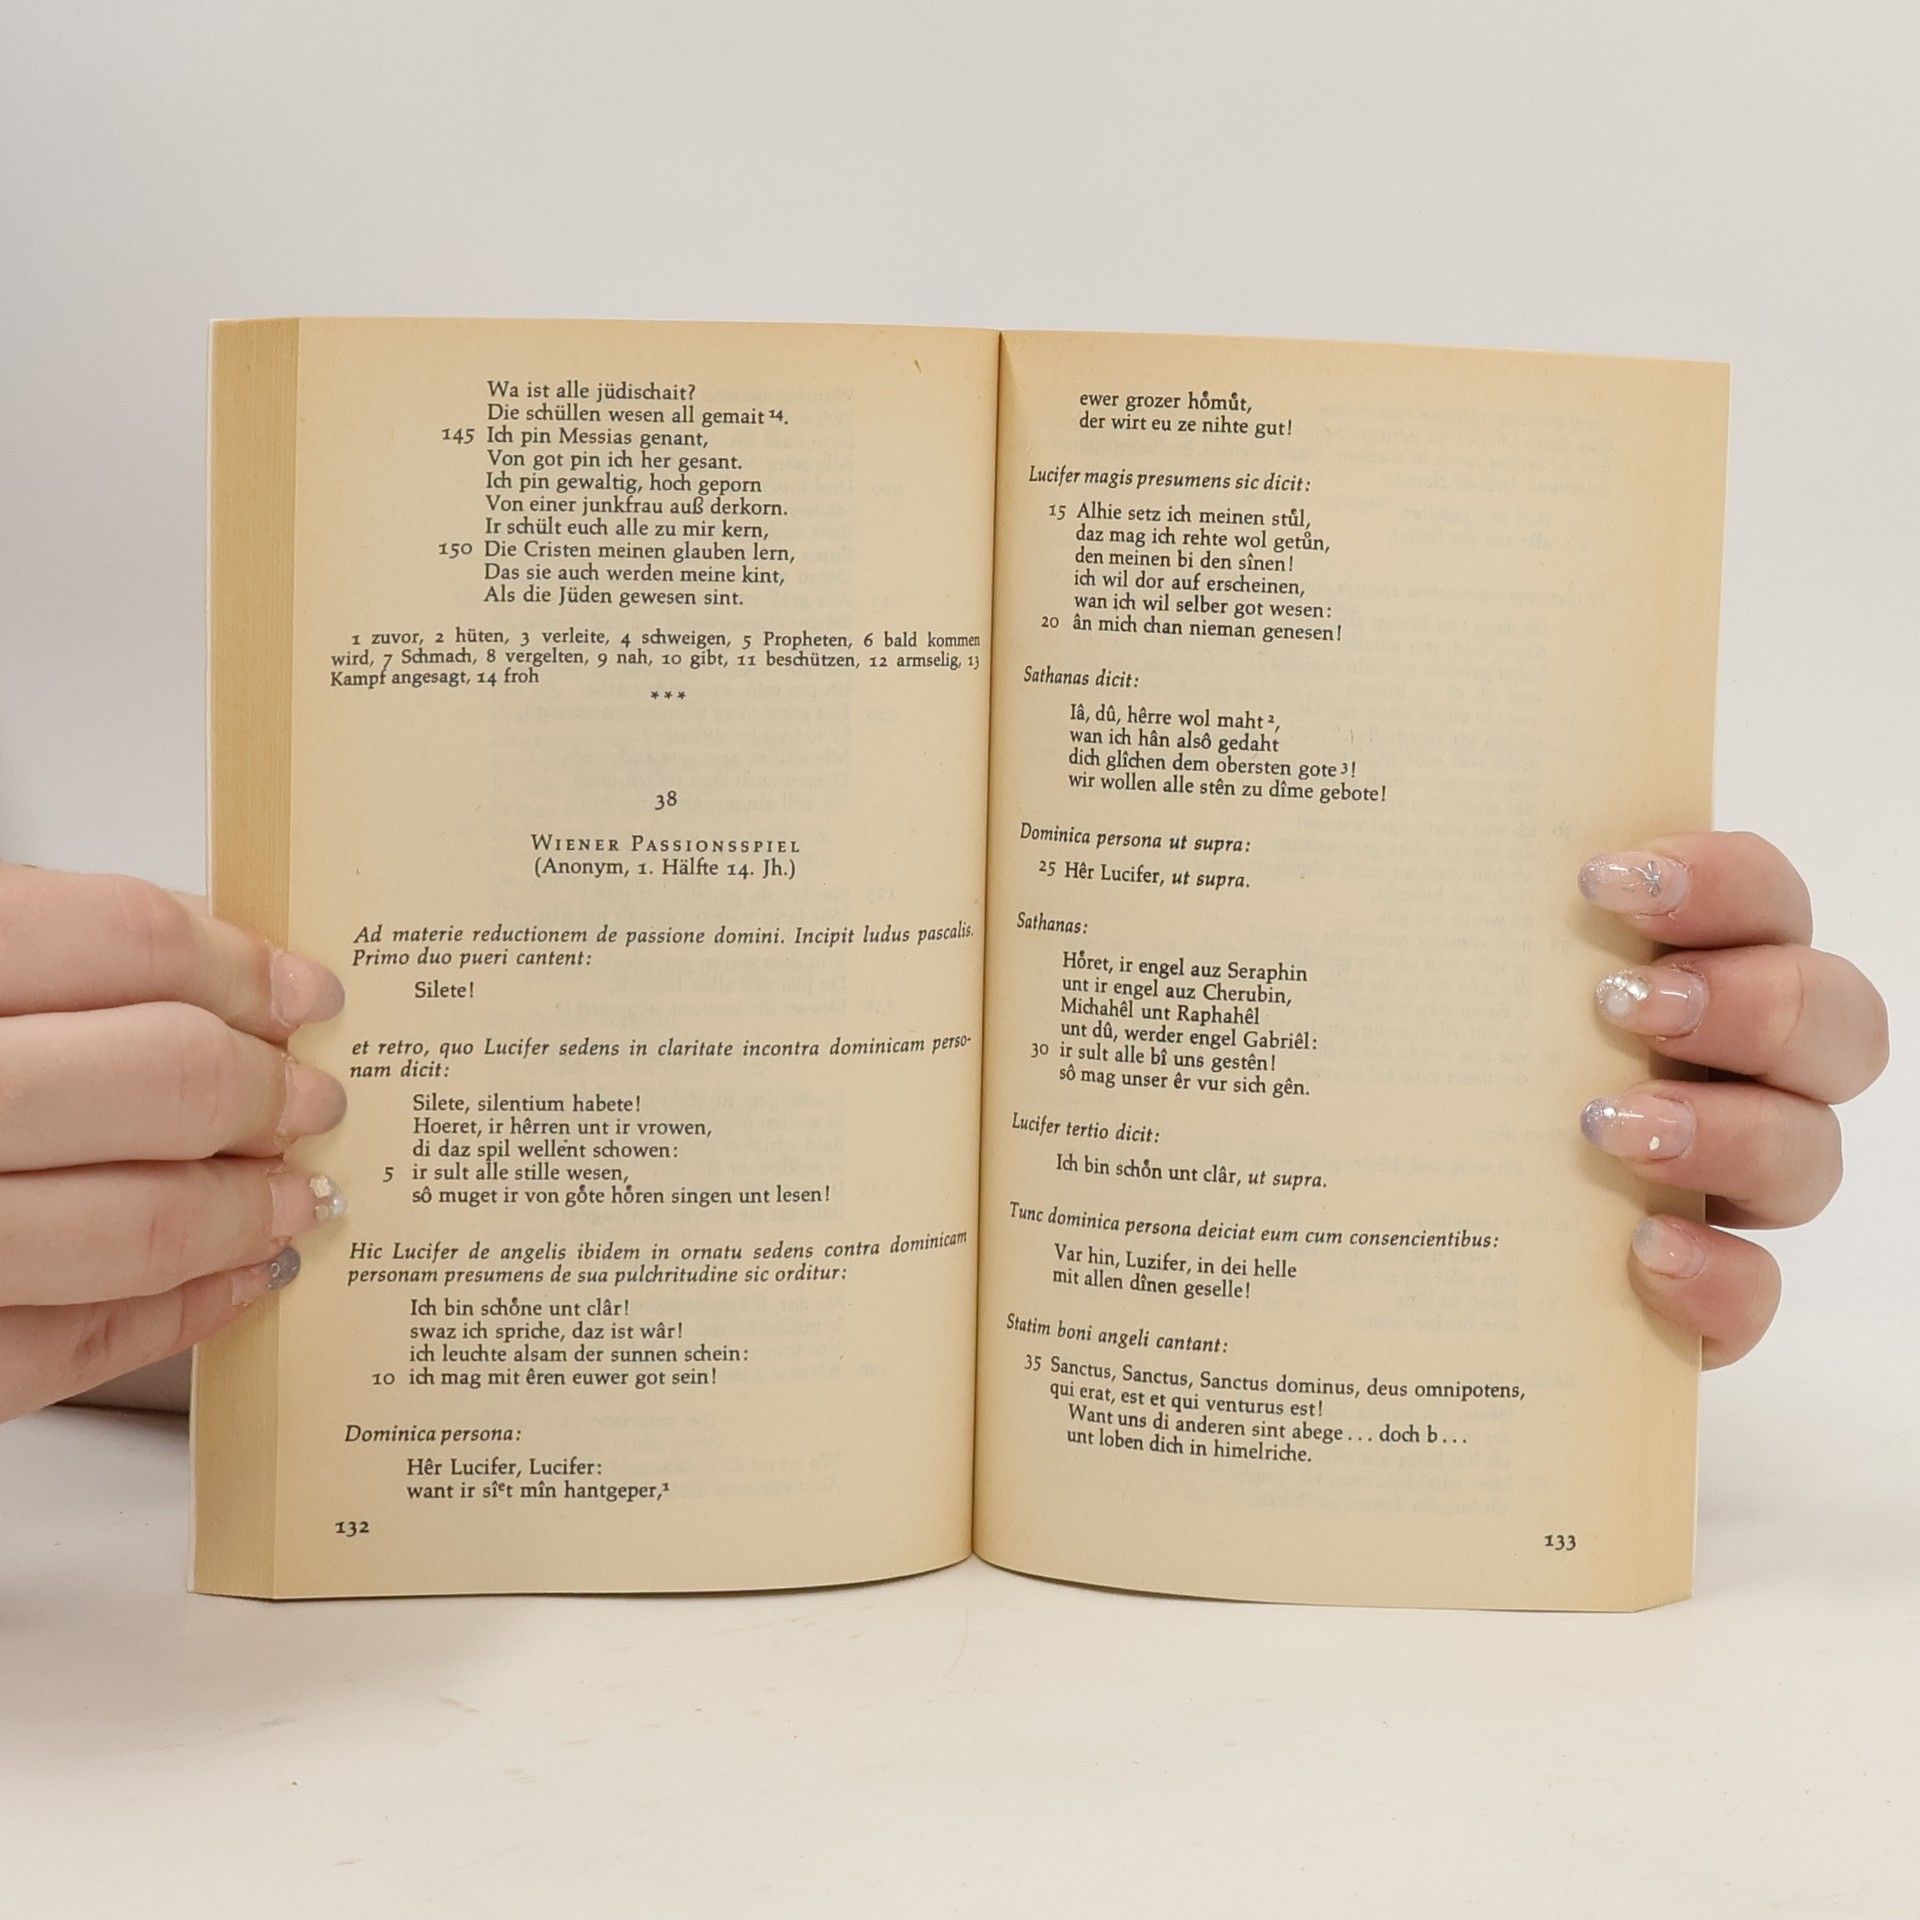 Wa ist alle jüdischait?
Die schüllen wesen all gemait¹⁴.
145 Ich pin Messias genant,
Von got pin ich her gesant.
Ich pin gewaltig, hoch geporn
Von einer junkfrau auß derkorn.
Ir schült euch alle zu mir kern,
150 Die Cristen meinen glauben lern,
Das sie auch werden meine kint,
Als die Jüden gewesen sint.
1 zuvor, 2 hüten, 3 verleite, 4 schweigen, 5 Propheten, 6 bald kommen
wird, 7 Schmach, 8 vergelten, 9 nah, 10 gibt, 11 beschützen, 12 armselig, 13
Kampf angesagt, 14 froh
***
38
WIENER PASSIONSSPIEL
(Anonym, 1. Hälfte 14. Jh.)
Ad materie reductionem de passione domini. Incipit ludus pascalis.
Primo duo pueri cantent:
Silete!
et retro, quo Lucifer sedens in claritate incontra dominicam perso-
nam dicit:
Silete, silentium habete!
Hoeret, ir hêrren unt ir vrowen,
di daz spil wellent schowen:
5 ir sult alle stille wesen,
sô muget ir von go̊te ho̊ren singen unt lesen!
Hic Lucifer de angelis ibidem in ornatu sedens contra dominicam
personam presumens de sua pulchritudine sic orditur:
Ich bin scho̊ne unt clâr!
swaz ich spriche, daz ist wâr!
ich leuchte alsam der sunnen schein:
10 ich mag mit êren euwer got sein!
Dominica persona:
Hêr Lucifer, Lucifer:
want ir sîͤt mîn hantgeper,¹
132
ewer grozer ho̊můt,
der wirt eu ze nihte gut!
Lucifer magis presumens sic dicit:
15 Alhie setz ich meinen stůl,
daz mag ich rehte wol getůn,
den meinen bi den sînen!
ich wil dor auf erscheinen,
wan ich wil selber got wesen:
20 ân mich chan nieman genesen!
Sathanas dicit:
Iâ, dû, hêrre wol maht²,
wan ich hân alsô gedaht
dich glîchen dem obersten gote³!
wir wollen alle stên zu dîme gebote!
Dominica persona ut supra:
25 Hêr Lucifer, ut supra.
Sathanas:
Ho̊ret, ir engel auz Seraphin
unt ir engel auz Cherubin,
Michahêl unt Raphahêl
unt dû, werder engel Gabriêl:
30 ir sult alle bî uns gestên!
sô mag unser êr vur sich gên.
Lucifer tertio dicit:
Ich bin scho̊n unt clâr, ut supra.
Tunc dominica persona deiciat eum cum consencientibus:
Var hin, Luzifer, in dei helle
mit allen dînen geselle!
Statim boni angeli cantant:
35 Sanctus, Sanctus, Sanctus dominus, deus omnipotens,
qui erat, est et qui venturus est!
Want uns di anderen sint abege ... doch b ...
unt loben dich in himelriche.
133